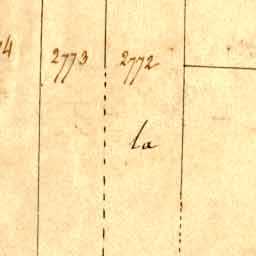 2773 2772
la